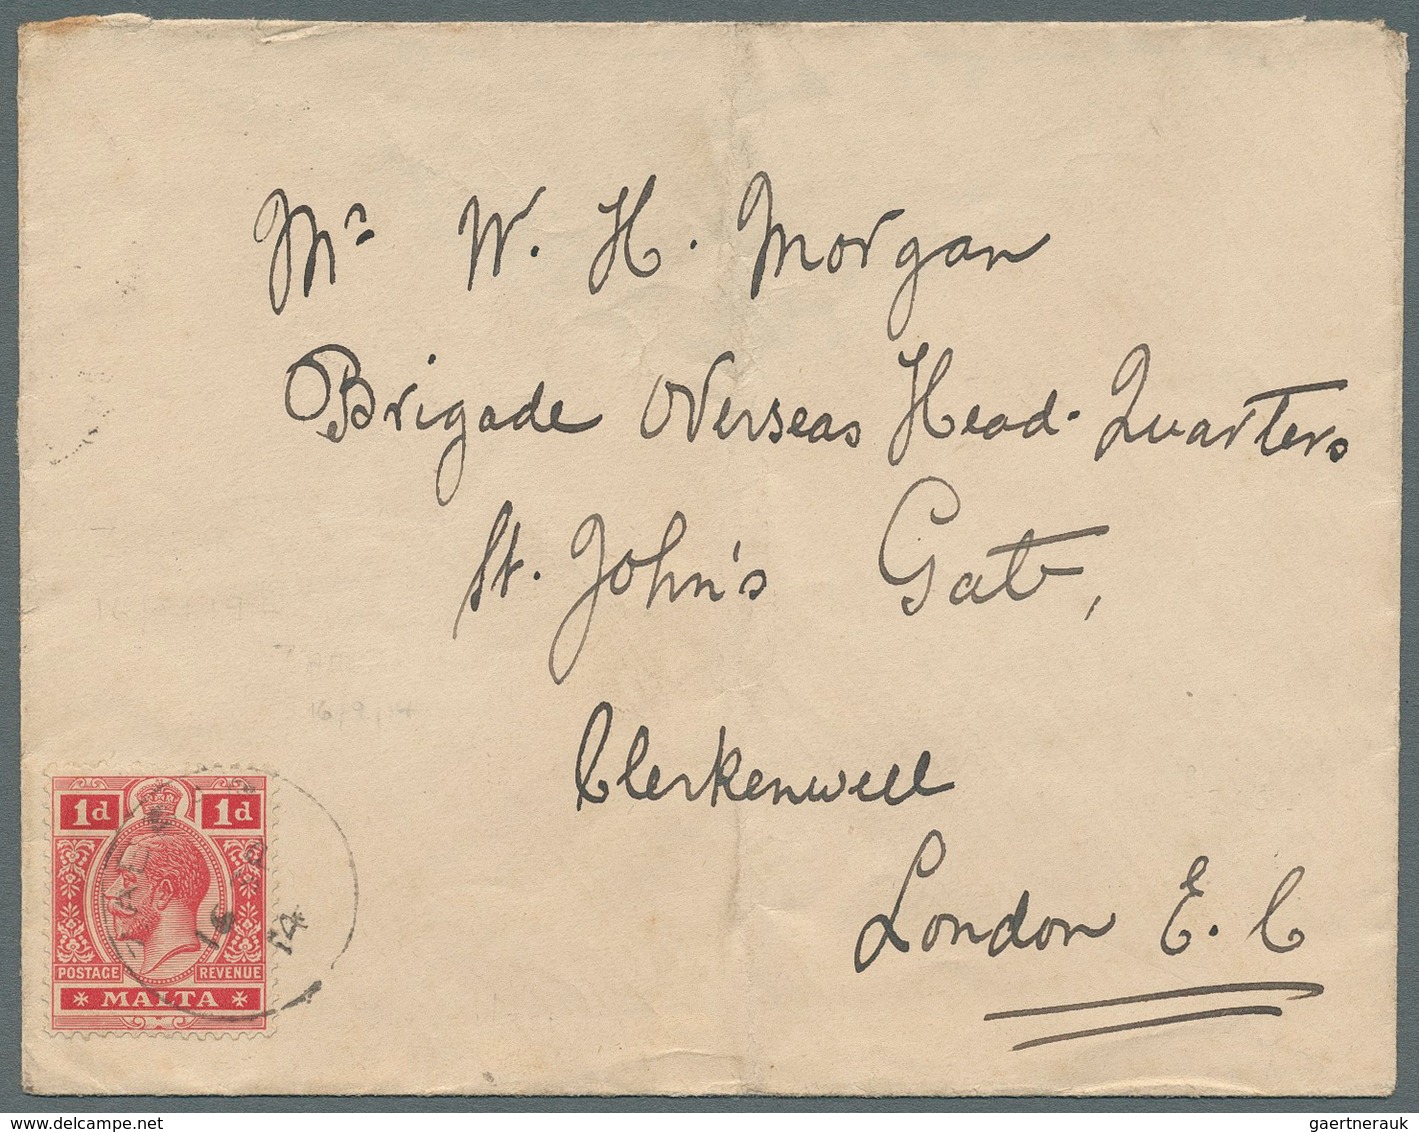 Mr W. H. Morgan
Brigade Overseas Head-Quarters
St. John's Gate,
Clerkenwell
London E. C
16/9/14
1d 1d
POSTAGE REVENUE
MALTA
16
14
www.delcampe.net
gaertnerauk